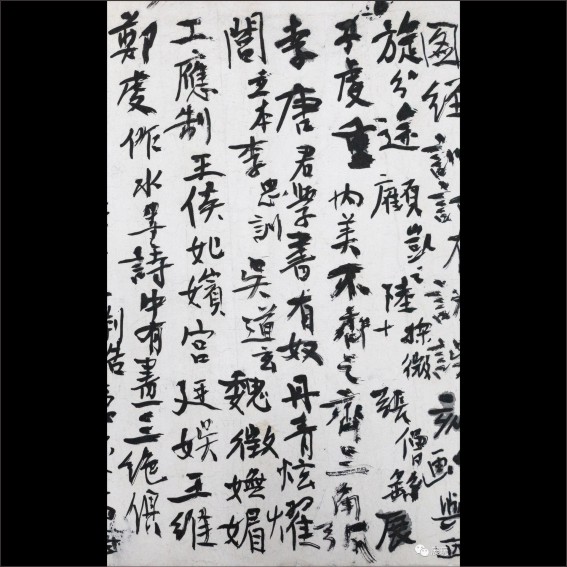 圖經訓詁
旋分途顧愷之陸探微張僧繇展
子虔重內美不齊之齊三角
李唐君學書有奴丹青炫耀
閻立本李思訓吳道玄魏徵嫵媚
工應制王侯妃嬪宮廷娛王維
鄭虔作水墨詩中有畫三絕俱